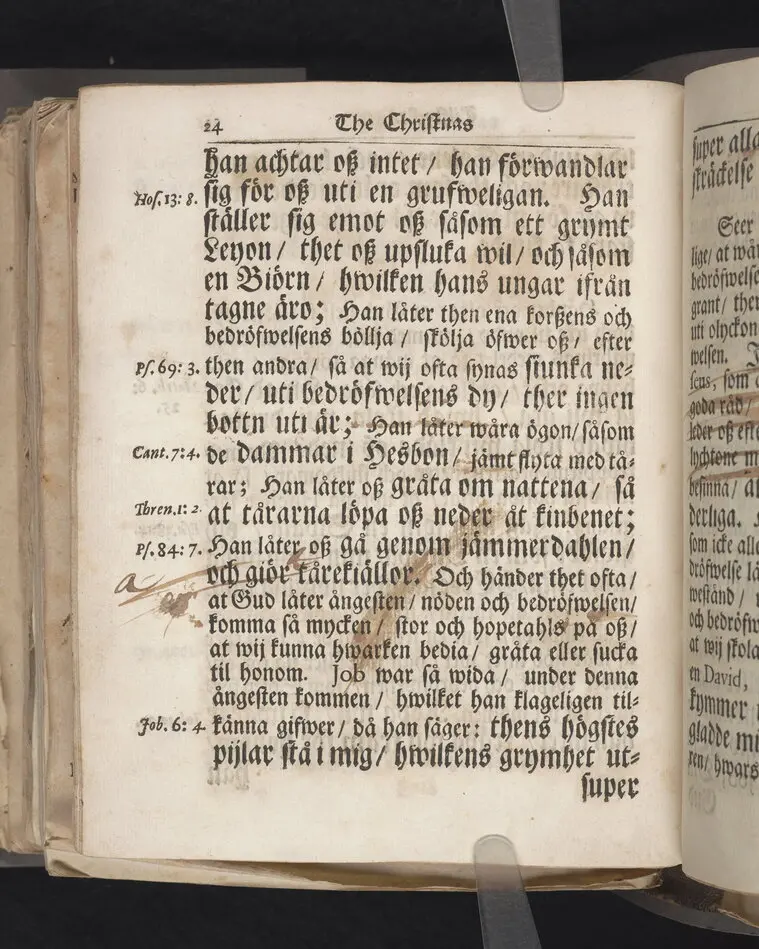 24 The Christnas
Han achtar oß intet / han förwandlar
Hos. 13: 8. sig för oß uti en grufweligan. Han
ställer sig emot oß såsom ett grymt
Leyon / thet oß upsluka wil / och såsom
en Biörn / hwilken hans ungar ifrån
tagne äro; Han låter then ena korßens och
bedröfwelsens böllja / skölja öfwer oß / efter
Ps. 69: 3. then andra / så at wij ofta synas siunka ne-
der / uti bedröfwelsens dy / ther ingen
bottn uti är; Han låter wåra ögon / såsom
Cant. 7: 4. de dammar i Hesbon / jämt flyta med tå-
rar; Han låter oß gråta om nattena / så
Thren. 1: 2. at tårarna löpa oß neder åt kinbenet;
Ps. 84: 7. Han låter oß gå genom jämmerdahlen /
och giör tårekiällor. Och händer thet ofta /
at Gud låter ångesten / nöden och bedröfwelsen /
komma så mycken / stor och hopetahls på oß /
at wij kunna hwarken bedia / gråta eller sucka
til honom. Job war så wida / under denna
ångesten kommen / hwilket han klageligen til-
Job. 6: 4. känna gifwer / då han säger: thens högstes
pijlar stå i mig / hwilkens grymhet ut-
super
super alla
sträckelse
Seer
lige / at wår
bedröfwelse
grant / then
uti olyckon
welsen.
som
goda råd /
leder oß efte
lychtone m
besinna /
derliga.
som icke alle
dröfwelse lå
westånd /
och bedröfw
at wij skola
en David,
kymmer
gladde mi
ren / hwars